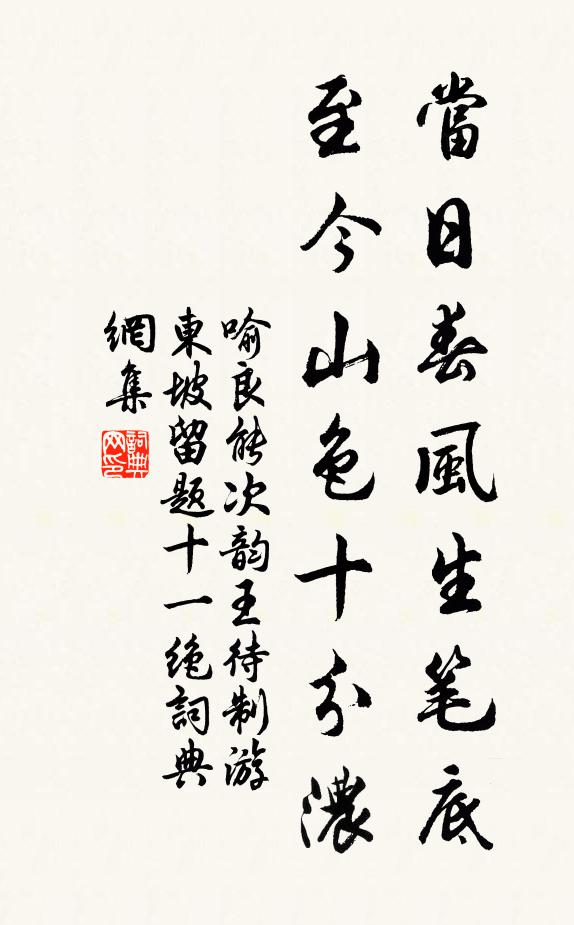 當日春風生笔底
至今山色十分濃
喻良能次韵王待制游
東坡留题十一绝詞典
網集
詞典
网印